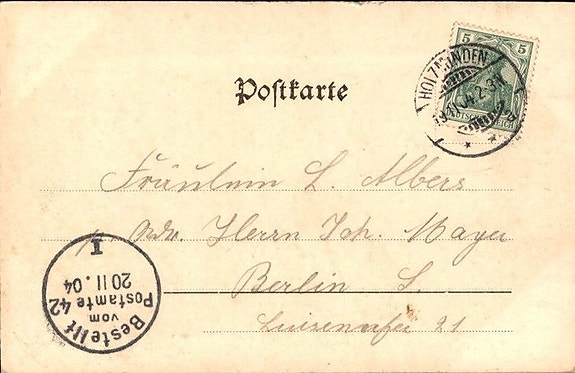 5 5
HOLZMINDEN
DEUTSCHES REICH
Postkarte
Fräulein L. Albers
Adr. Herrn Joh. Mayer
Berlin S.
Luisenufer 21
Bestellt
vom
Postamte 42
20 11. 04
I